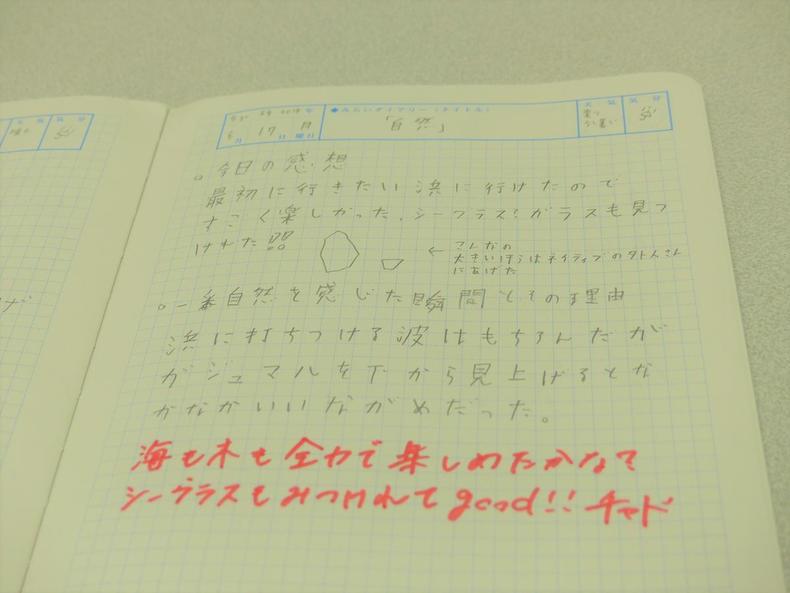 年
6月17日 月曜日
◆みらいダイアリー（タイトル）
「自然」
天気
気分
天気
気分
○今日の感想
最初に行きたい浜に行けたので
すごく楽しかった.シーグラス!ガラスも見つ
けれた
← こんなの
大きいほうはネイティブのタトムさん
にあげた
○一番自然を感じた瞬間とその理由
浜に打ちつける波はもちろんだが
ガジュマルを下から見上げるとな
かなかいいながめだった。
海も木も全力で楽しめたかな?
シーグラスもみつけれてgood!! チャド